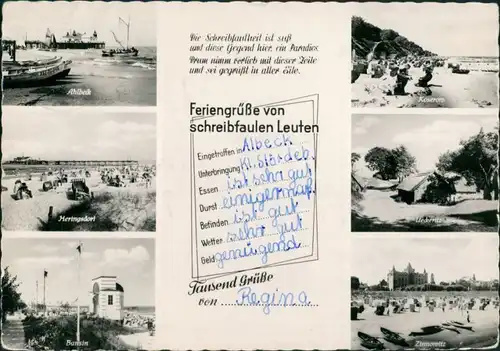 Die Schreibfaulheit ist süß
und diese Gegend hier, ein Paradies
Drum nimm vorlieb mit dieser Zeile
und sei gegrüßt in aller Eile.
Feriengrüße von
schreibfaulen Leuten
Eingetroffen in Albeck
Unterbringung Kl. Stördeb.
Essen ist sehr gut
Durst einigermaß.
Befinden ist gut
Wetter sehr gut
Geld genügend
Tausend Grüße
von Regina
Ahlbeck
Heringsdorf
Bansin
Koserow
Ückeritz
Zinnowitz